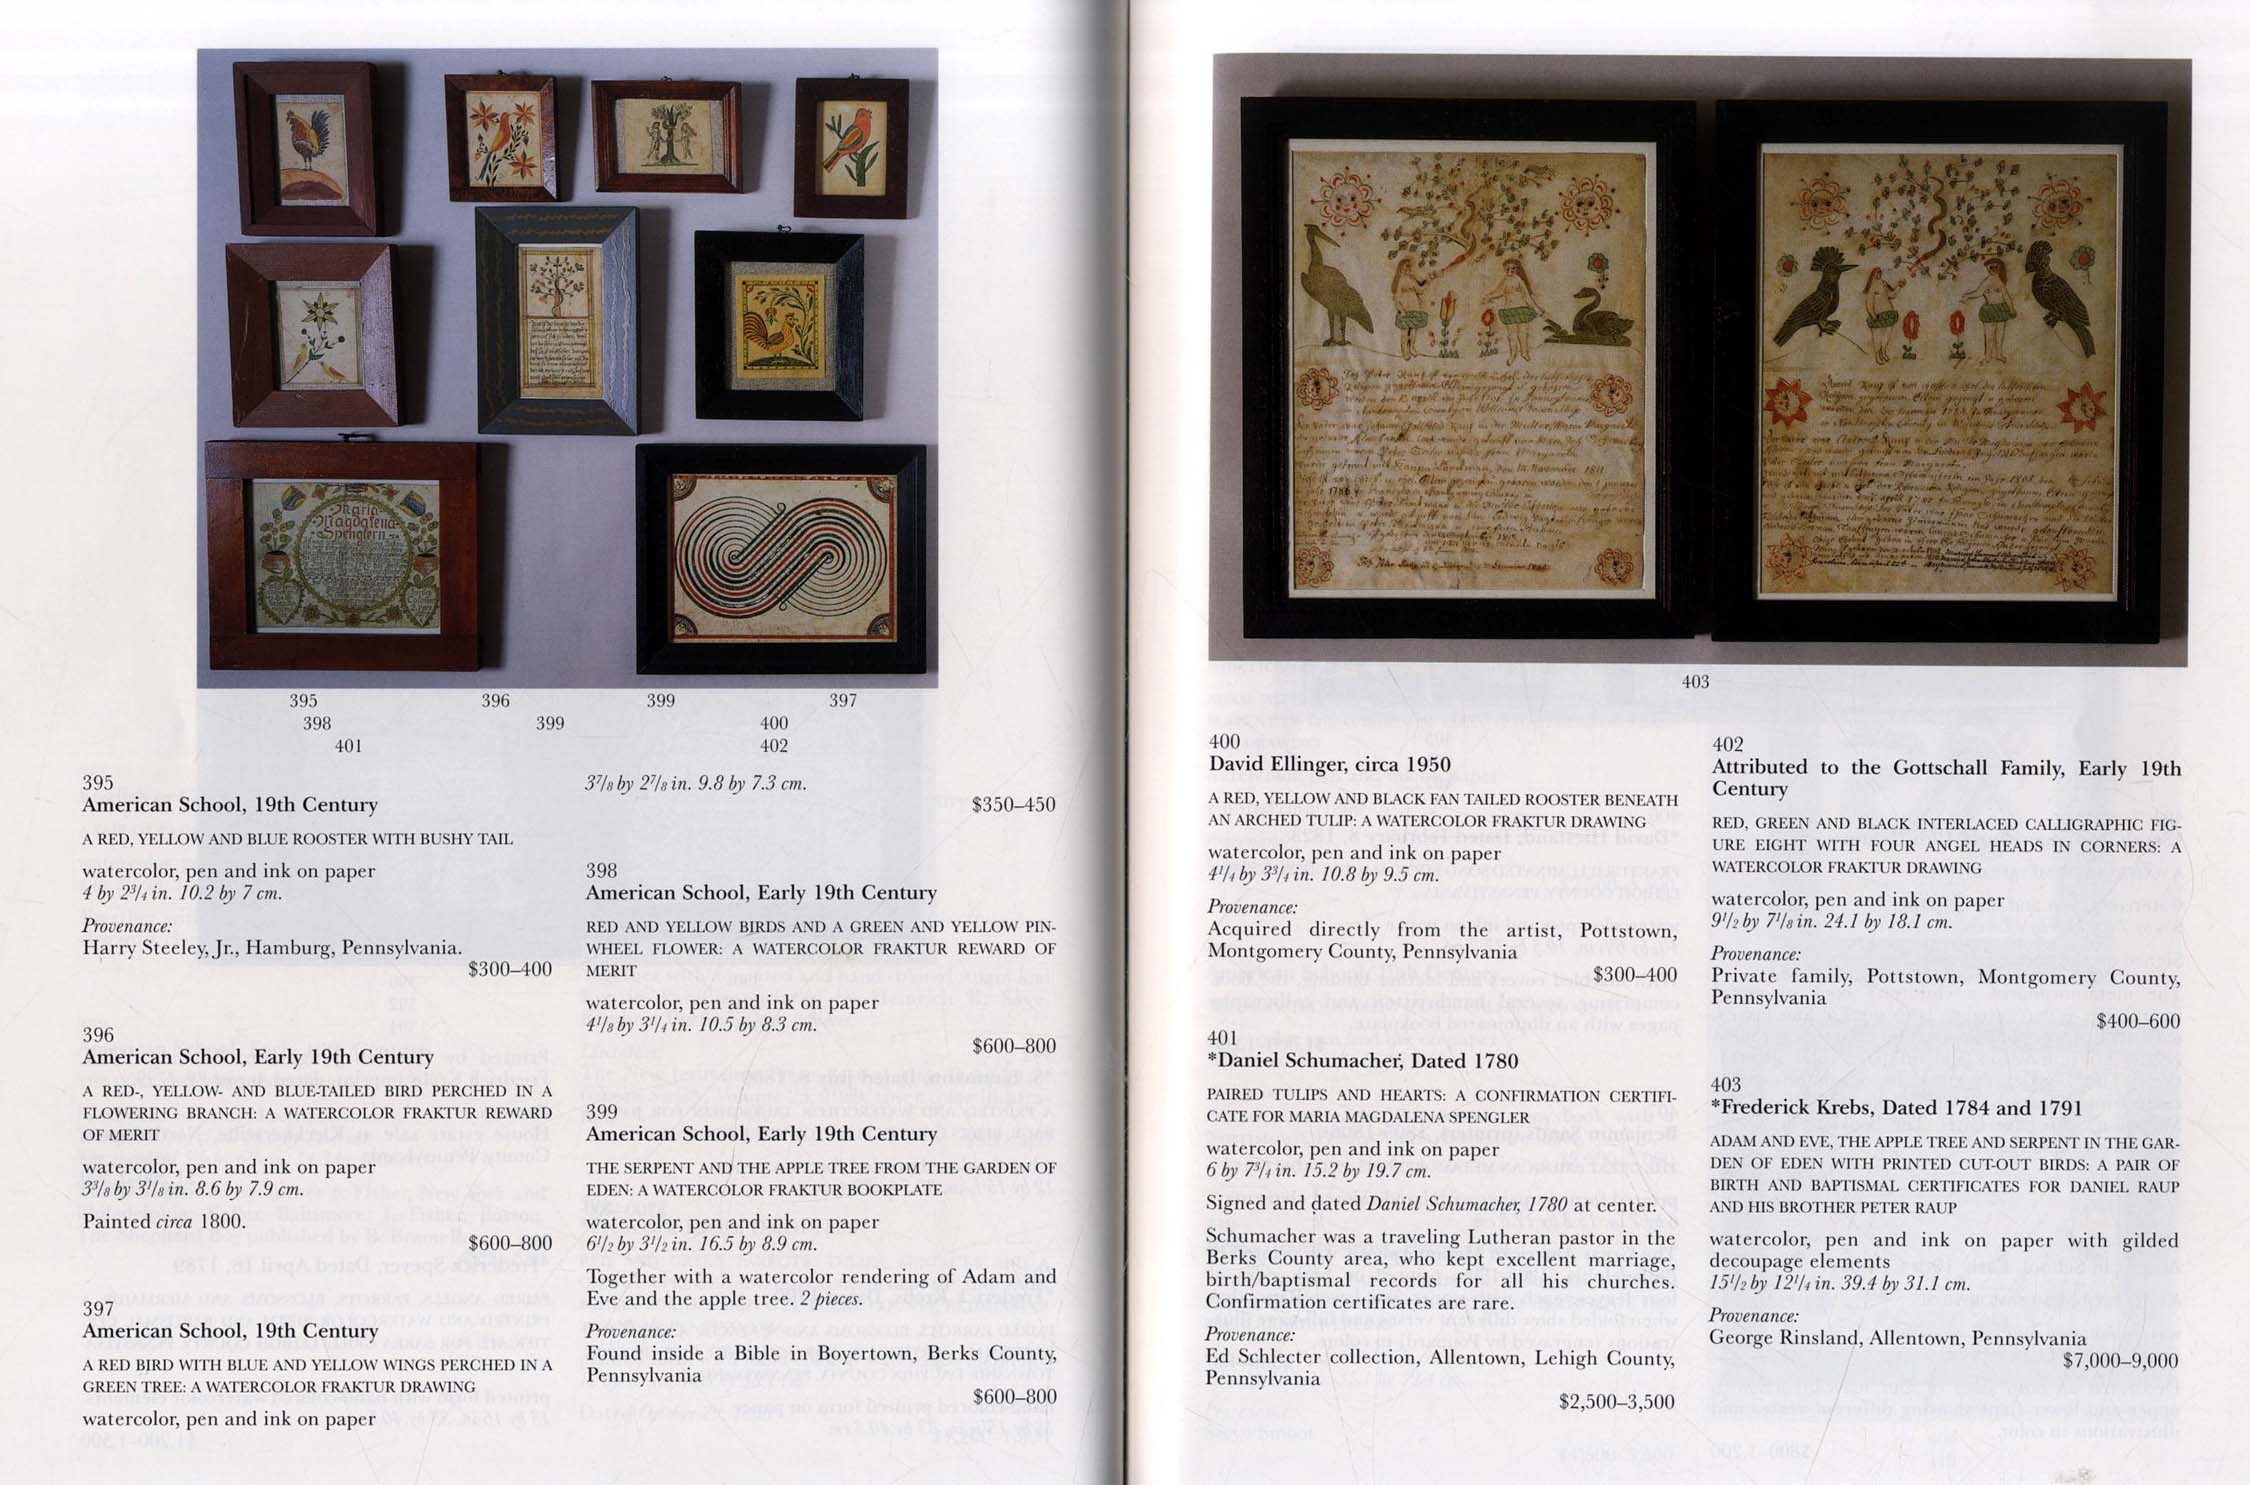 Maria
Magdalena
Spenglern
395 396 399 397
398 399 400
401 402
395
American School, 19th Century
A RED, YELLOW AND BLUE ROOSTER WITH BUSHY TAIL
watercolor, pen and ink on paper
4 by 2¾ in. 10.2 by 7 cm.
Provenance:
Harry Steeley, Jr., Hamburg, Pennsylvania.
$300–400
396
American School, Early 19th Century
A RED-, YELLOW- AND BLUE-TAILED BIRD PERCHED IN A
FLOWERING BRANCH: A WATERCOLOR FRAKTUR REWARD
OF MERIT
watercolor, pen and ink on paper
3⅜ by 3⅛ in. 8.6 by 7.9 cm.
Painted circa 1800.
$600–800
397
American School, 19th Century
A RED BIRD WITH BLUE AND YELLOW WINGS PERCHED IN A
GREEN TREE: A WATERCOLOR FRAKTUR DRAWING
watercolor, pen and ink on paper
3⅞ by 2⅞ in. 9.8 by 7.3 cm.
$350–450
398
American School, Early 19th Century
RED AND YELLOW BIRDS AND A GREEN AND YELLOW PIN-
WHEEL FLOWER: A WATERCOLOR FRAKTUR REWARD OF
MERIT
watercolor, pen and ink on paper
4⅛ by 3¼ in. 10.5 by 8.3 cm.
$600–800
399
American School, Early 19th Century
THE SERPENT AND THE APPLE TREE FROM THE GARDEN OF
EDEN: A WATERCOLOR FRAKTUR BOOKPLATE
watercolor, pen and ink on paper
6½ by 3½ in. 16.5 by 8.9 cm.
Together with a watercolor rendering of Adam and
Eve and the apple tree. 2 pieces.
Provenance:
Found inside a Bible in Boyertown, Berks County,
Pennsylvania
$600–800
403
400
David Ellinger, circa 1950
A RED, YELLOW AND BLACK FAN TAILED ROOSTER BENEATH
AN ARCHED TULIP: A WATERCOLOR FRAKTUR DRAWING
watercolor, pen and ink on paper
4¼ by 3¾ in. 10.8 by 9.5 cm.
Provenance:
Acquired directly from the artist, Pottstown,
Montgomery County, Pennsylvania
$300–400
401
*Daniel Schumacher, Dated 1780
PAIRED TULIPS AND HEARTS: A CONFIRMATION CERTIFI-
CATE FOR MARIA MAGDALENA SPENGLER
watercolor, pen and ink on paper
6 by 7¾ in. 15.2 by 19.7 cm.
Signed and dated Daniel Schumacher, 1780 at center.
Schumacher was a traveling Lutheran pastor in the
Berks County area, who kept excellent marriage,
birth/baptismal records for all his churches.
Confirmation certificates are rare.
Provenance:
Ed Schlecter collection, Allentown, Lehigh County,
Pennsylvania
$2,500–3,500
402
Attributed to the Gottschall Family, Early 19th
Century
RED, GREEN AND BLACK INTERLACED CALLIGRAPHIC FIG-
URE EIGHT WITH FOUR ANGEL HEADS IN CORNERS: A
WATERCOLOR FRAKTUR DRAWING
watercolor, pen and ink on paper
9½ by 7⅛ in. 24.1 by 18.1 cm.
Provenance:
Private family, Pottstown, Montgomery County,
Pennsylvania
$400–600
403
*Frederick Krebs, Dated 1784 and 1791
ADAM AND EVE, THE APPLE TREE AND SERPENT IN THE GAR-
DEN OF EDEN WITH PRINTED CUT-OUT BIRDS: A PAIR OF
BIRTH AND BAPTISMAL CERTIFICATES FOR DANIEL RAUP
AND HIS BROTHER PETER RAUP
watercolor, pen and ink on paper with gilded
decoupage elements
15½ by 12¼ in. 39.4 by 31.1 cm.
Provenance:
George Rinsland, Allentown, Pennsylvania
$7,000–9,000